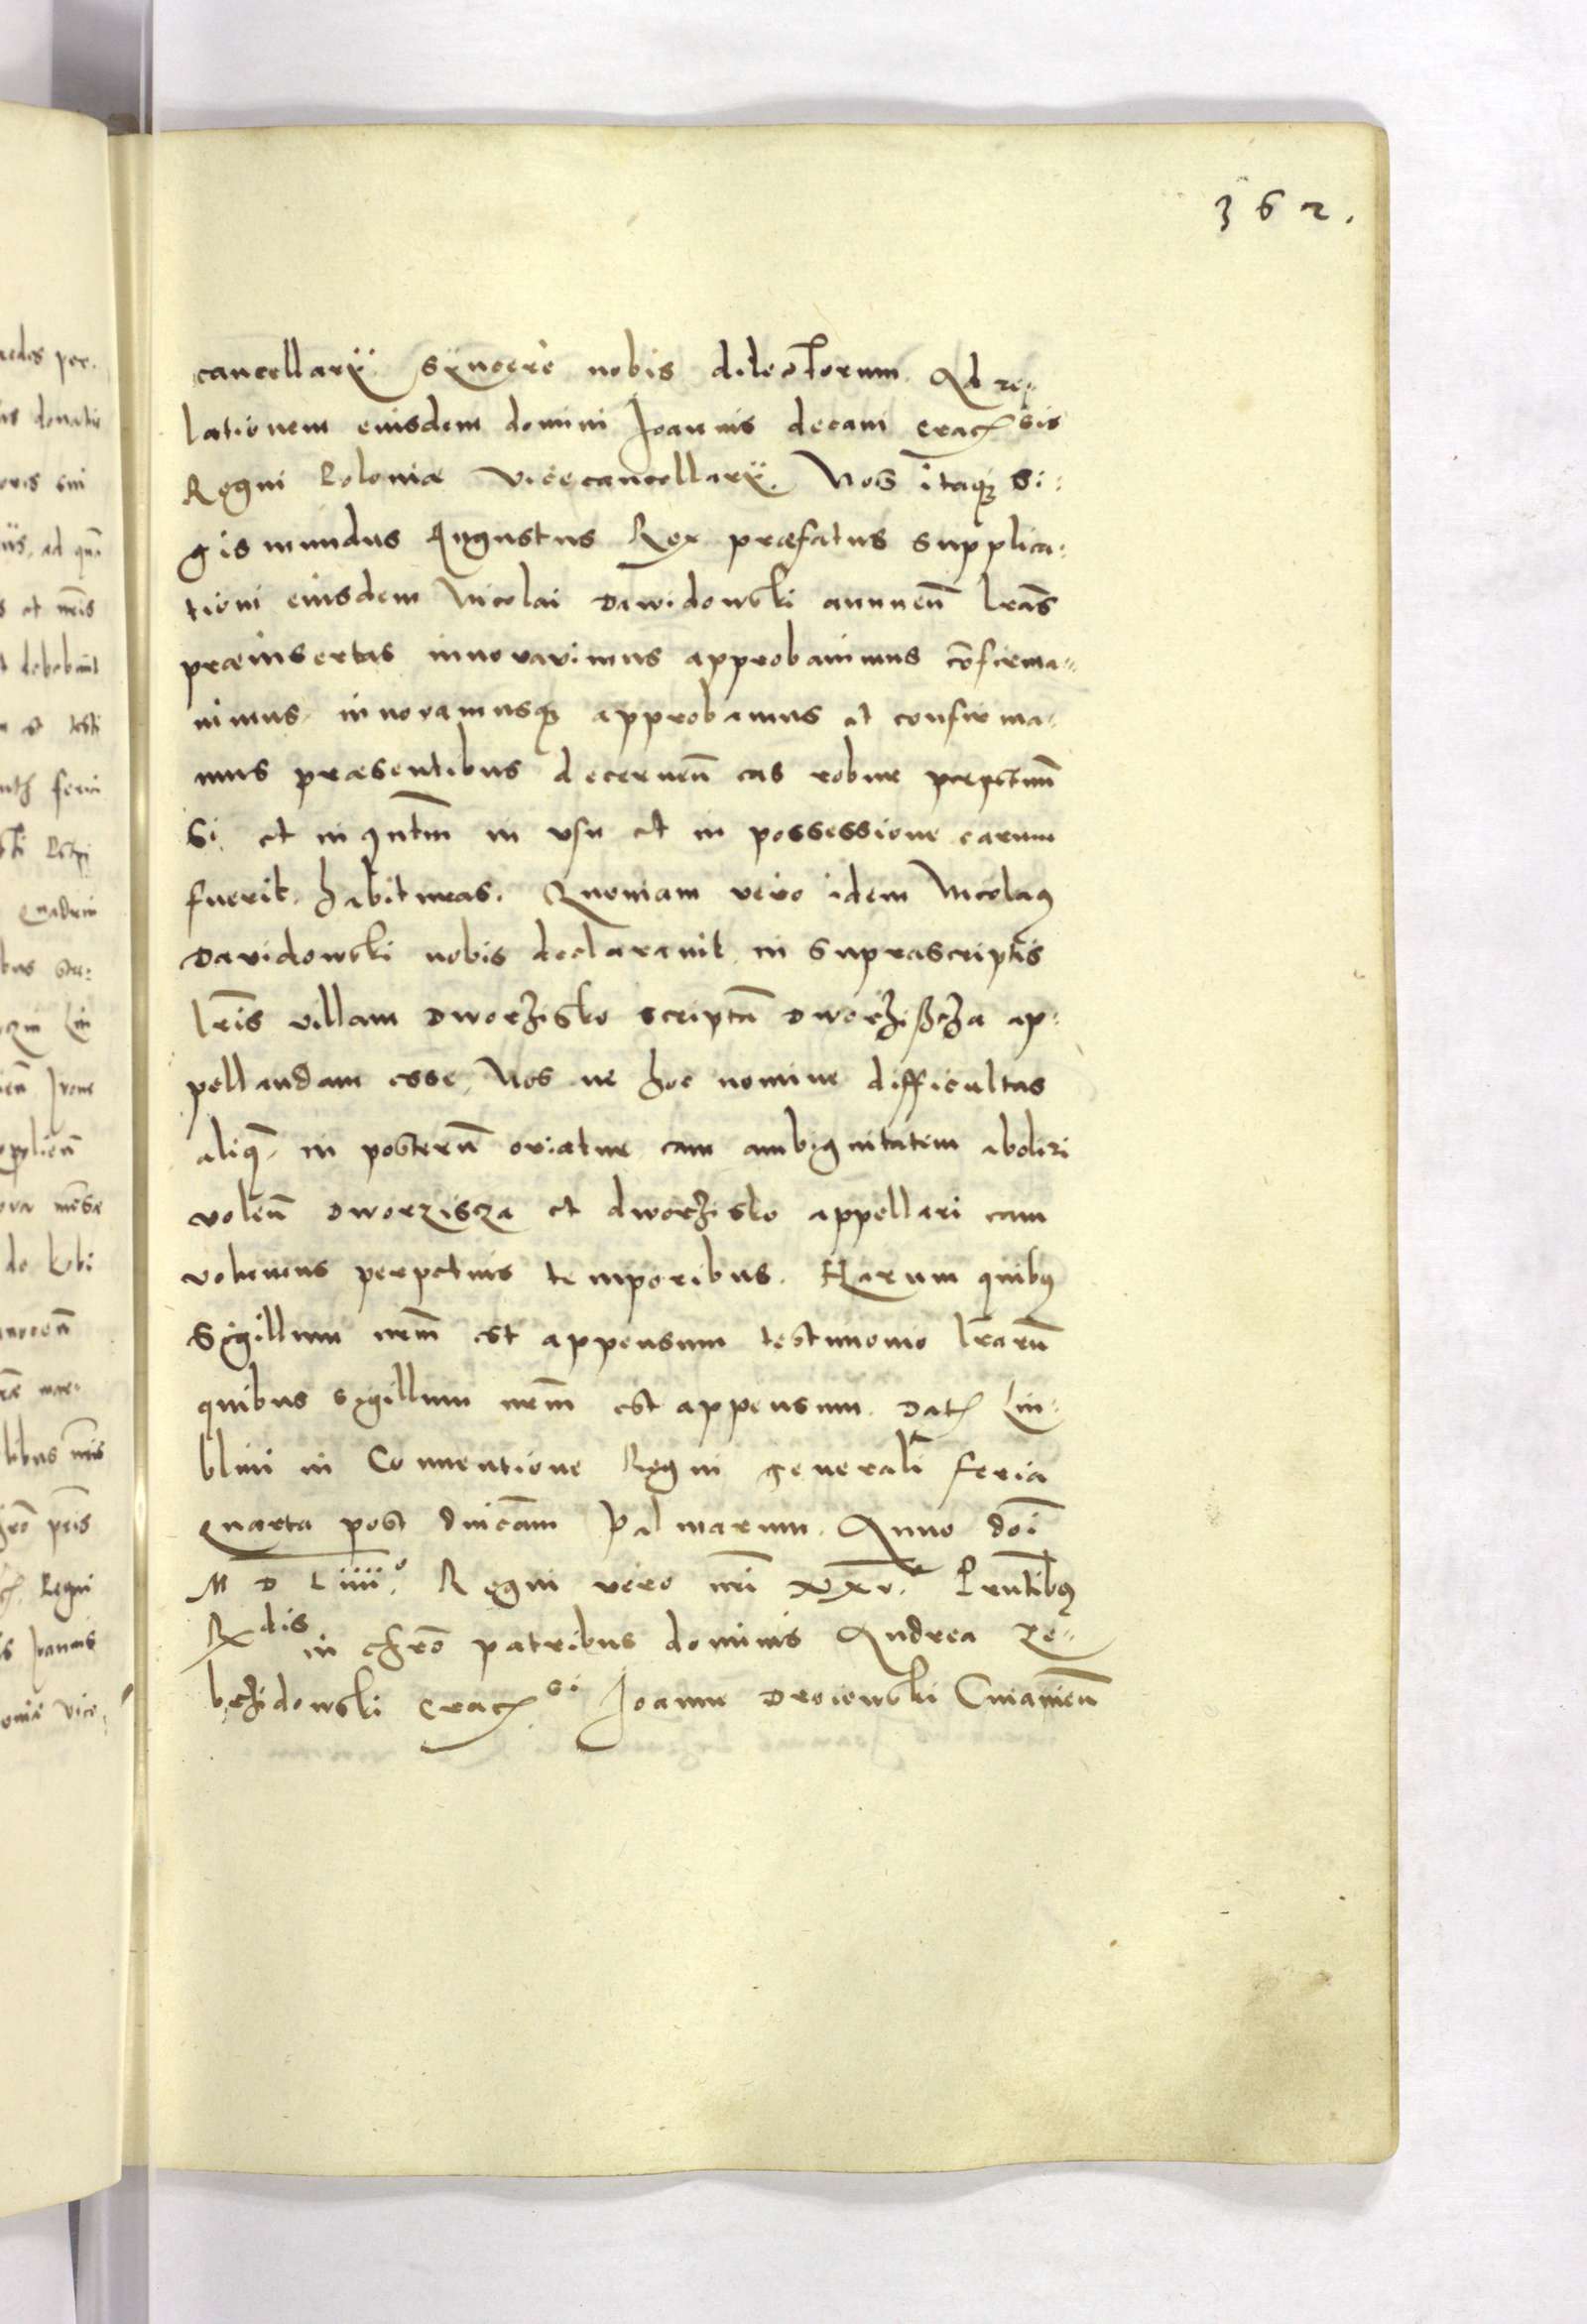 362.
cancellarÿ sÿncere nobis dilectorum. Ad re-
lationem eiusdem domini Joannis decani Crac̃sis
Regni Poloniæ Vicecancellarÿ. Nos itaq; Si-
gismundus Augustus Rex præfatus supplica-
tioni eiusdem Nicolai Dawidowski annueñ lr̃as
præinsertas innovavimus approbavimus cõfirma-
uimus. innovamusq; approbamus et confirma-
mus præsentibus decerneñ eas robur perpetuũ
Si. et in q̃ntm̃ in vsu et in possessione earum
fuerit. habituras. Quoniam vero idem Nicolaꝯ
Davidowski nobis declaravit in suprascriptis
lr̃is villam Dworzisko scriptã Dworzisscza ap-
pellandam esse, Nos ne hoc nomine difficultas
aliq̃. in posterũ oriatur eam ambiguitatem aboleri
voleñ Dworzisza et dworzisko appellari eam
volumus perpetuis temporibus. Harum quibꝯ
Sigillum nr̃m est appensum testimonio lr̃arũ
quibus sigillum nr̃m est appensum. Dat̃ Lu-
blini in Conventione Regni generali feria
quarta post dnicam Palmarum. Anno dñi
M D Liiii.° Regni vero nr̃i xxv. Prñtibꝯ
Rdis in chrõ patribus dominis Andrea Ze-
brzidowski Crac̃si Joanne Droiowski Cuiavieñ